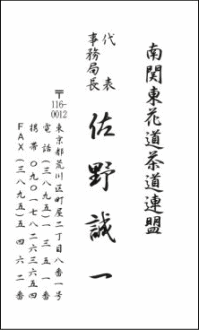 南関東花道茶道連盟
代表
事務局長
佐野誠一
〒116-0012
東京都荒川区町屋二丁目八番一号
電話(三八九五)一三五一番
携帯〇九〇一七八二六三六五四
FAX(三八九五)五四六二番